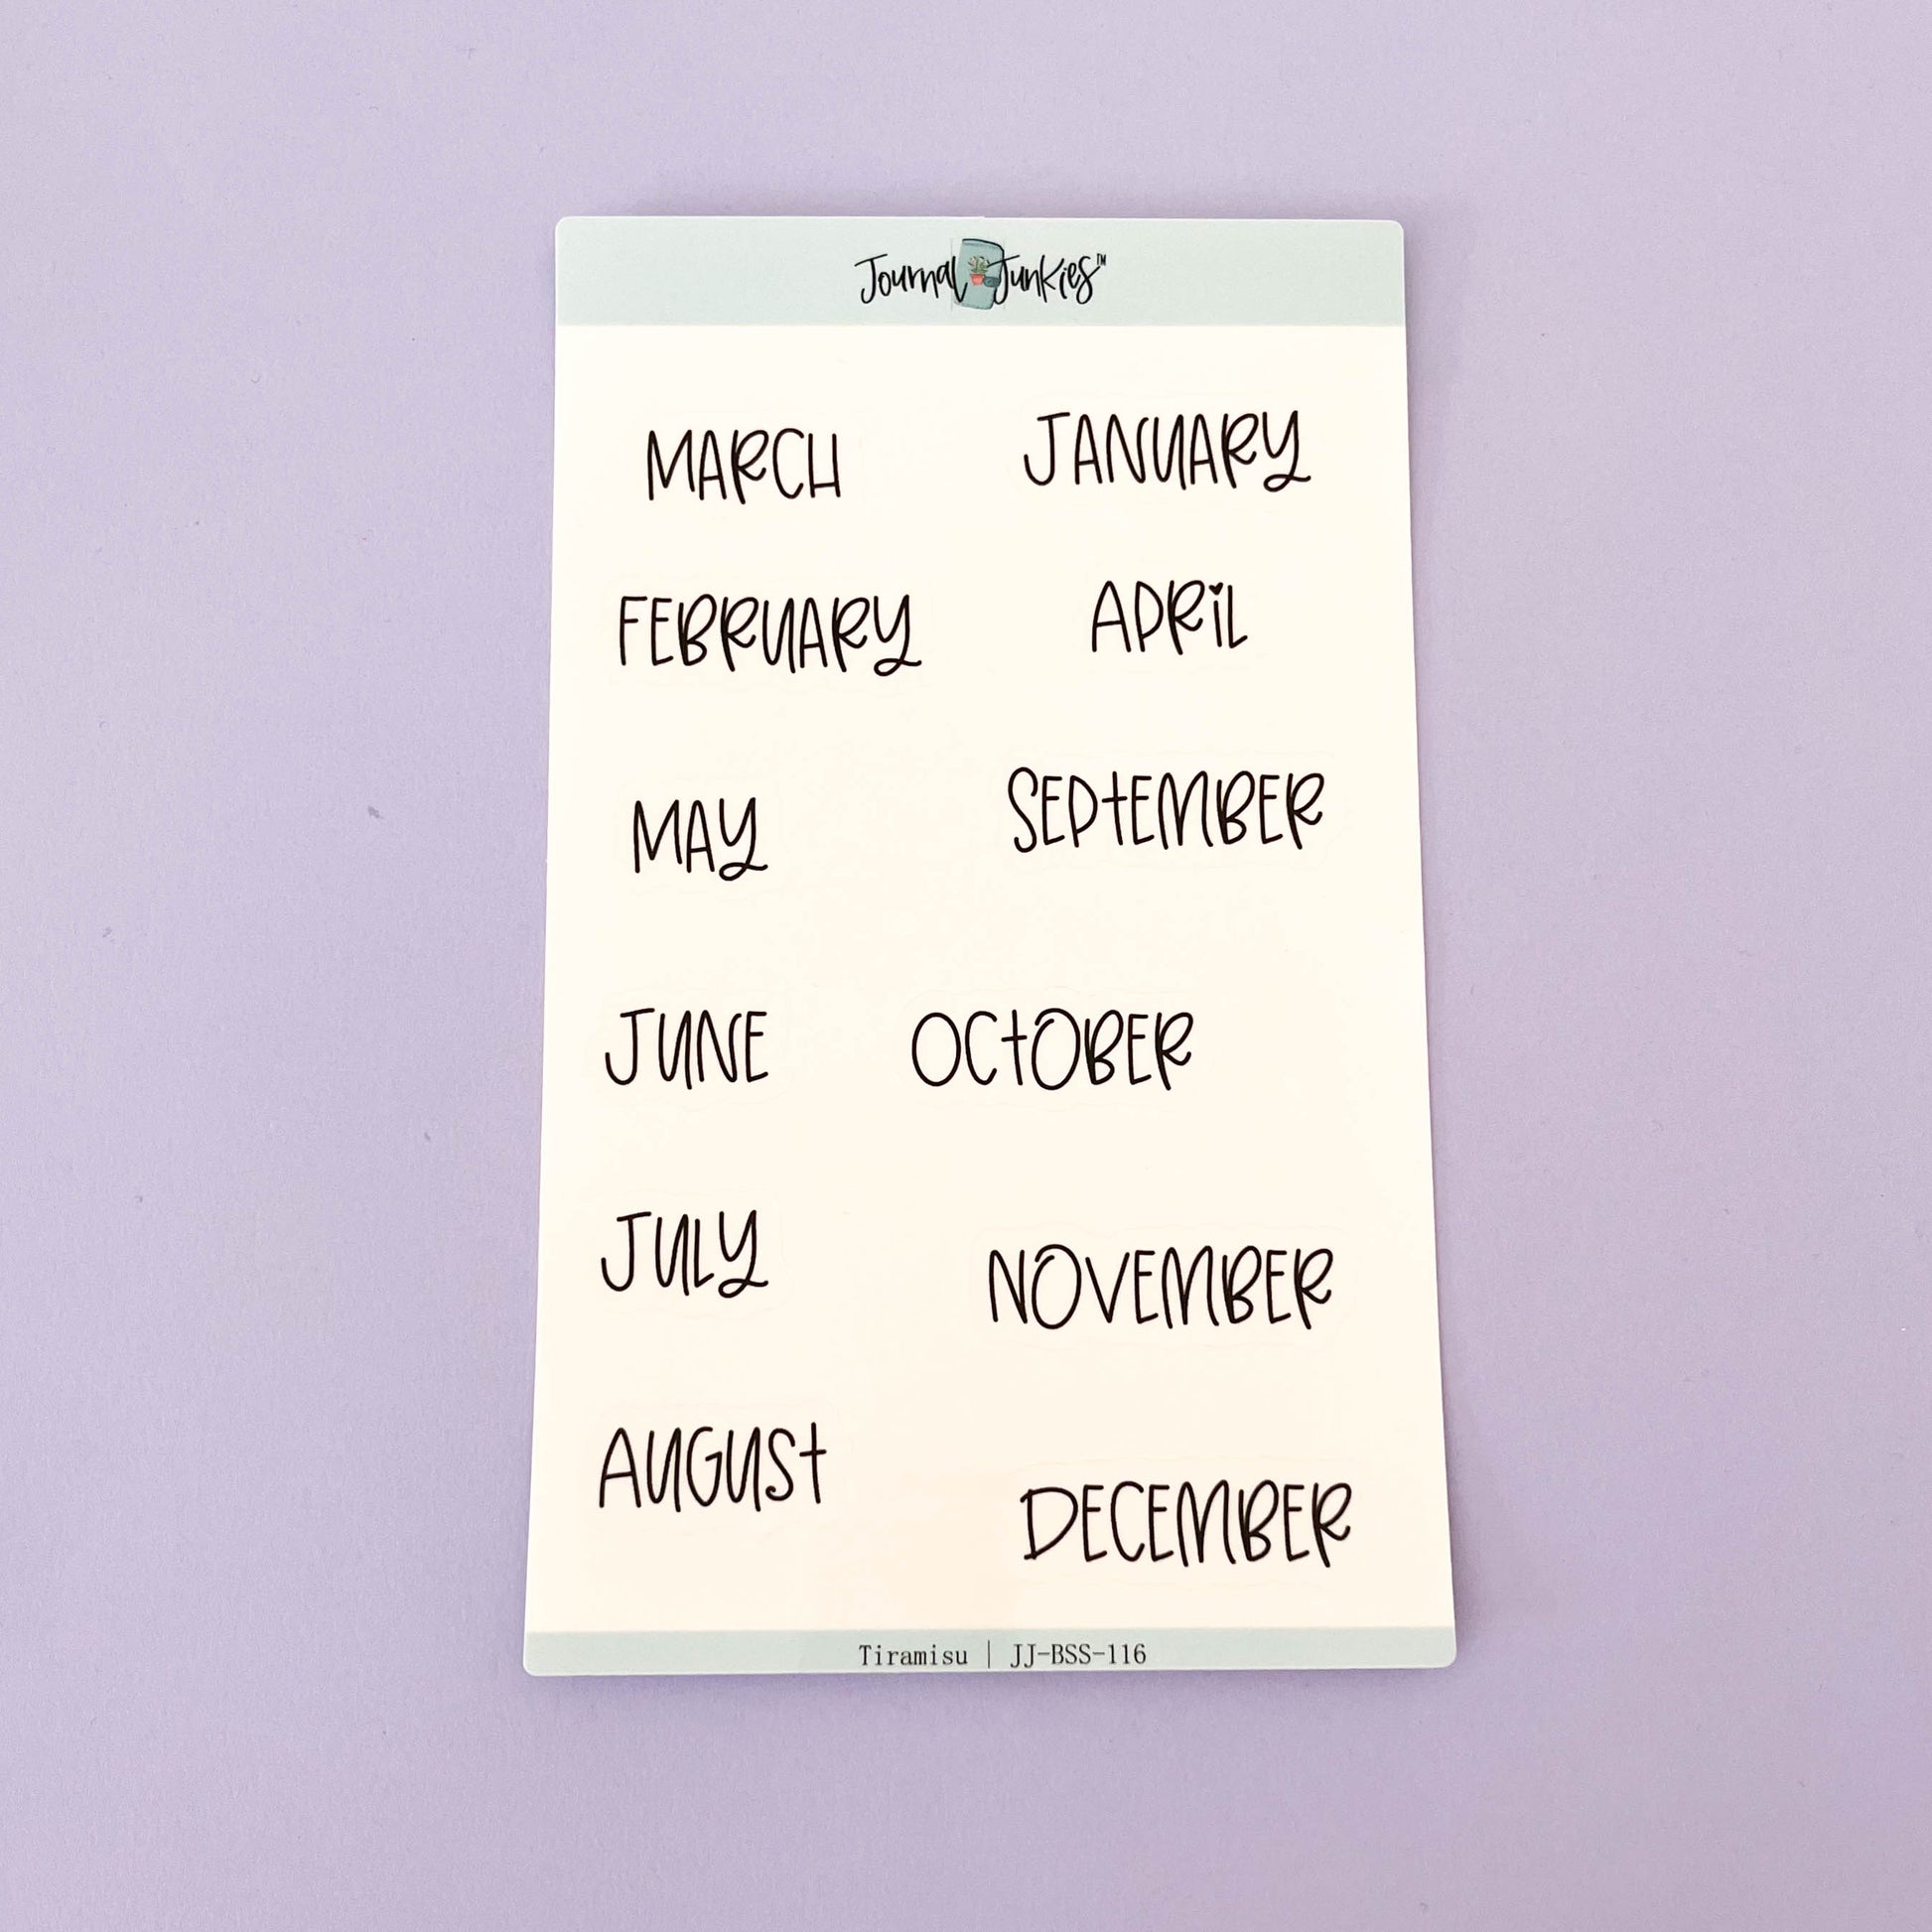 Journal Junkies™
MARCH JANUARY
FEBRUARY APRiL
MAY SEPtEMBER
JUNE OCtOBER
JULY NOVEMBER
AUGUSt DECEMBER
Tiramisu | JJ-BSS-116